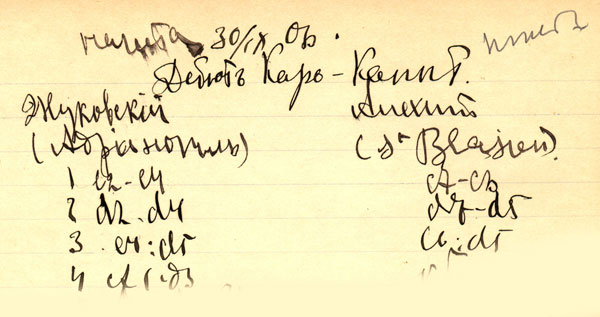 начата 30/IX 06.
Дебютъ Каро-Каннъ.
Жуковскій Алехинъ
(Адріанополь) (St Blasien).
1 e2-e4 c7-c6
2 d2-d4 d7-d5
3 e4:d5 c6:d5
4 Cf1-d3